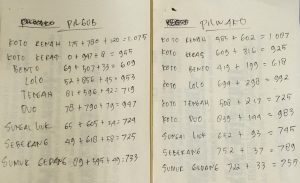 PILGUB
KOTO RENAH 175 + 780 + 120 = 1.075
KOTO KERAS 0 + 947 + 8 = 955
BENTO 69 + 507 + 33 = 609
LOLO 52 + 856 + 45 = 953
TENGAH 81 + 596 + 42 = 719
DUO 78 + 790 + 79 = 947
SUNGAI LUK 65 + 605 + 54 = 724
SEBERANG 49 + 618 + 58 = 725
SUMUR GEDANG 89 + 595 + 49 = 733
PILWAKO
KOTO RENAH 485 + 602 = 1.087
KOTO KERAS 609 + 316 = 925
BENTO 419 + 199 = 618
KOTO LOLO 694 + 298 = 992
KOTO TENGAH 508 + 217 = 725
KOTO DUO 839 + 144 = 983
SUNGAI LUK 652 + 93 = 745
SEBERANG 752 + 37 = 789
SUMUR GEDANG 722 + 33 = 755